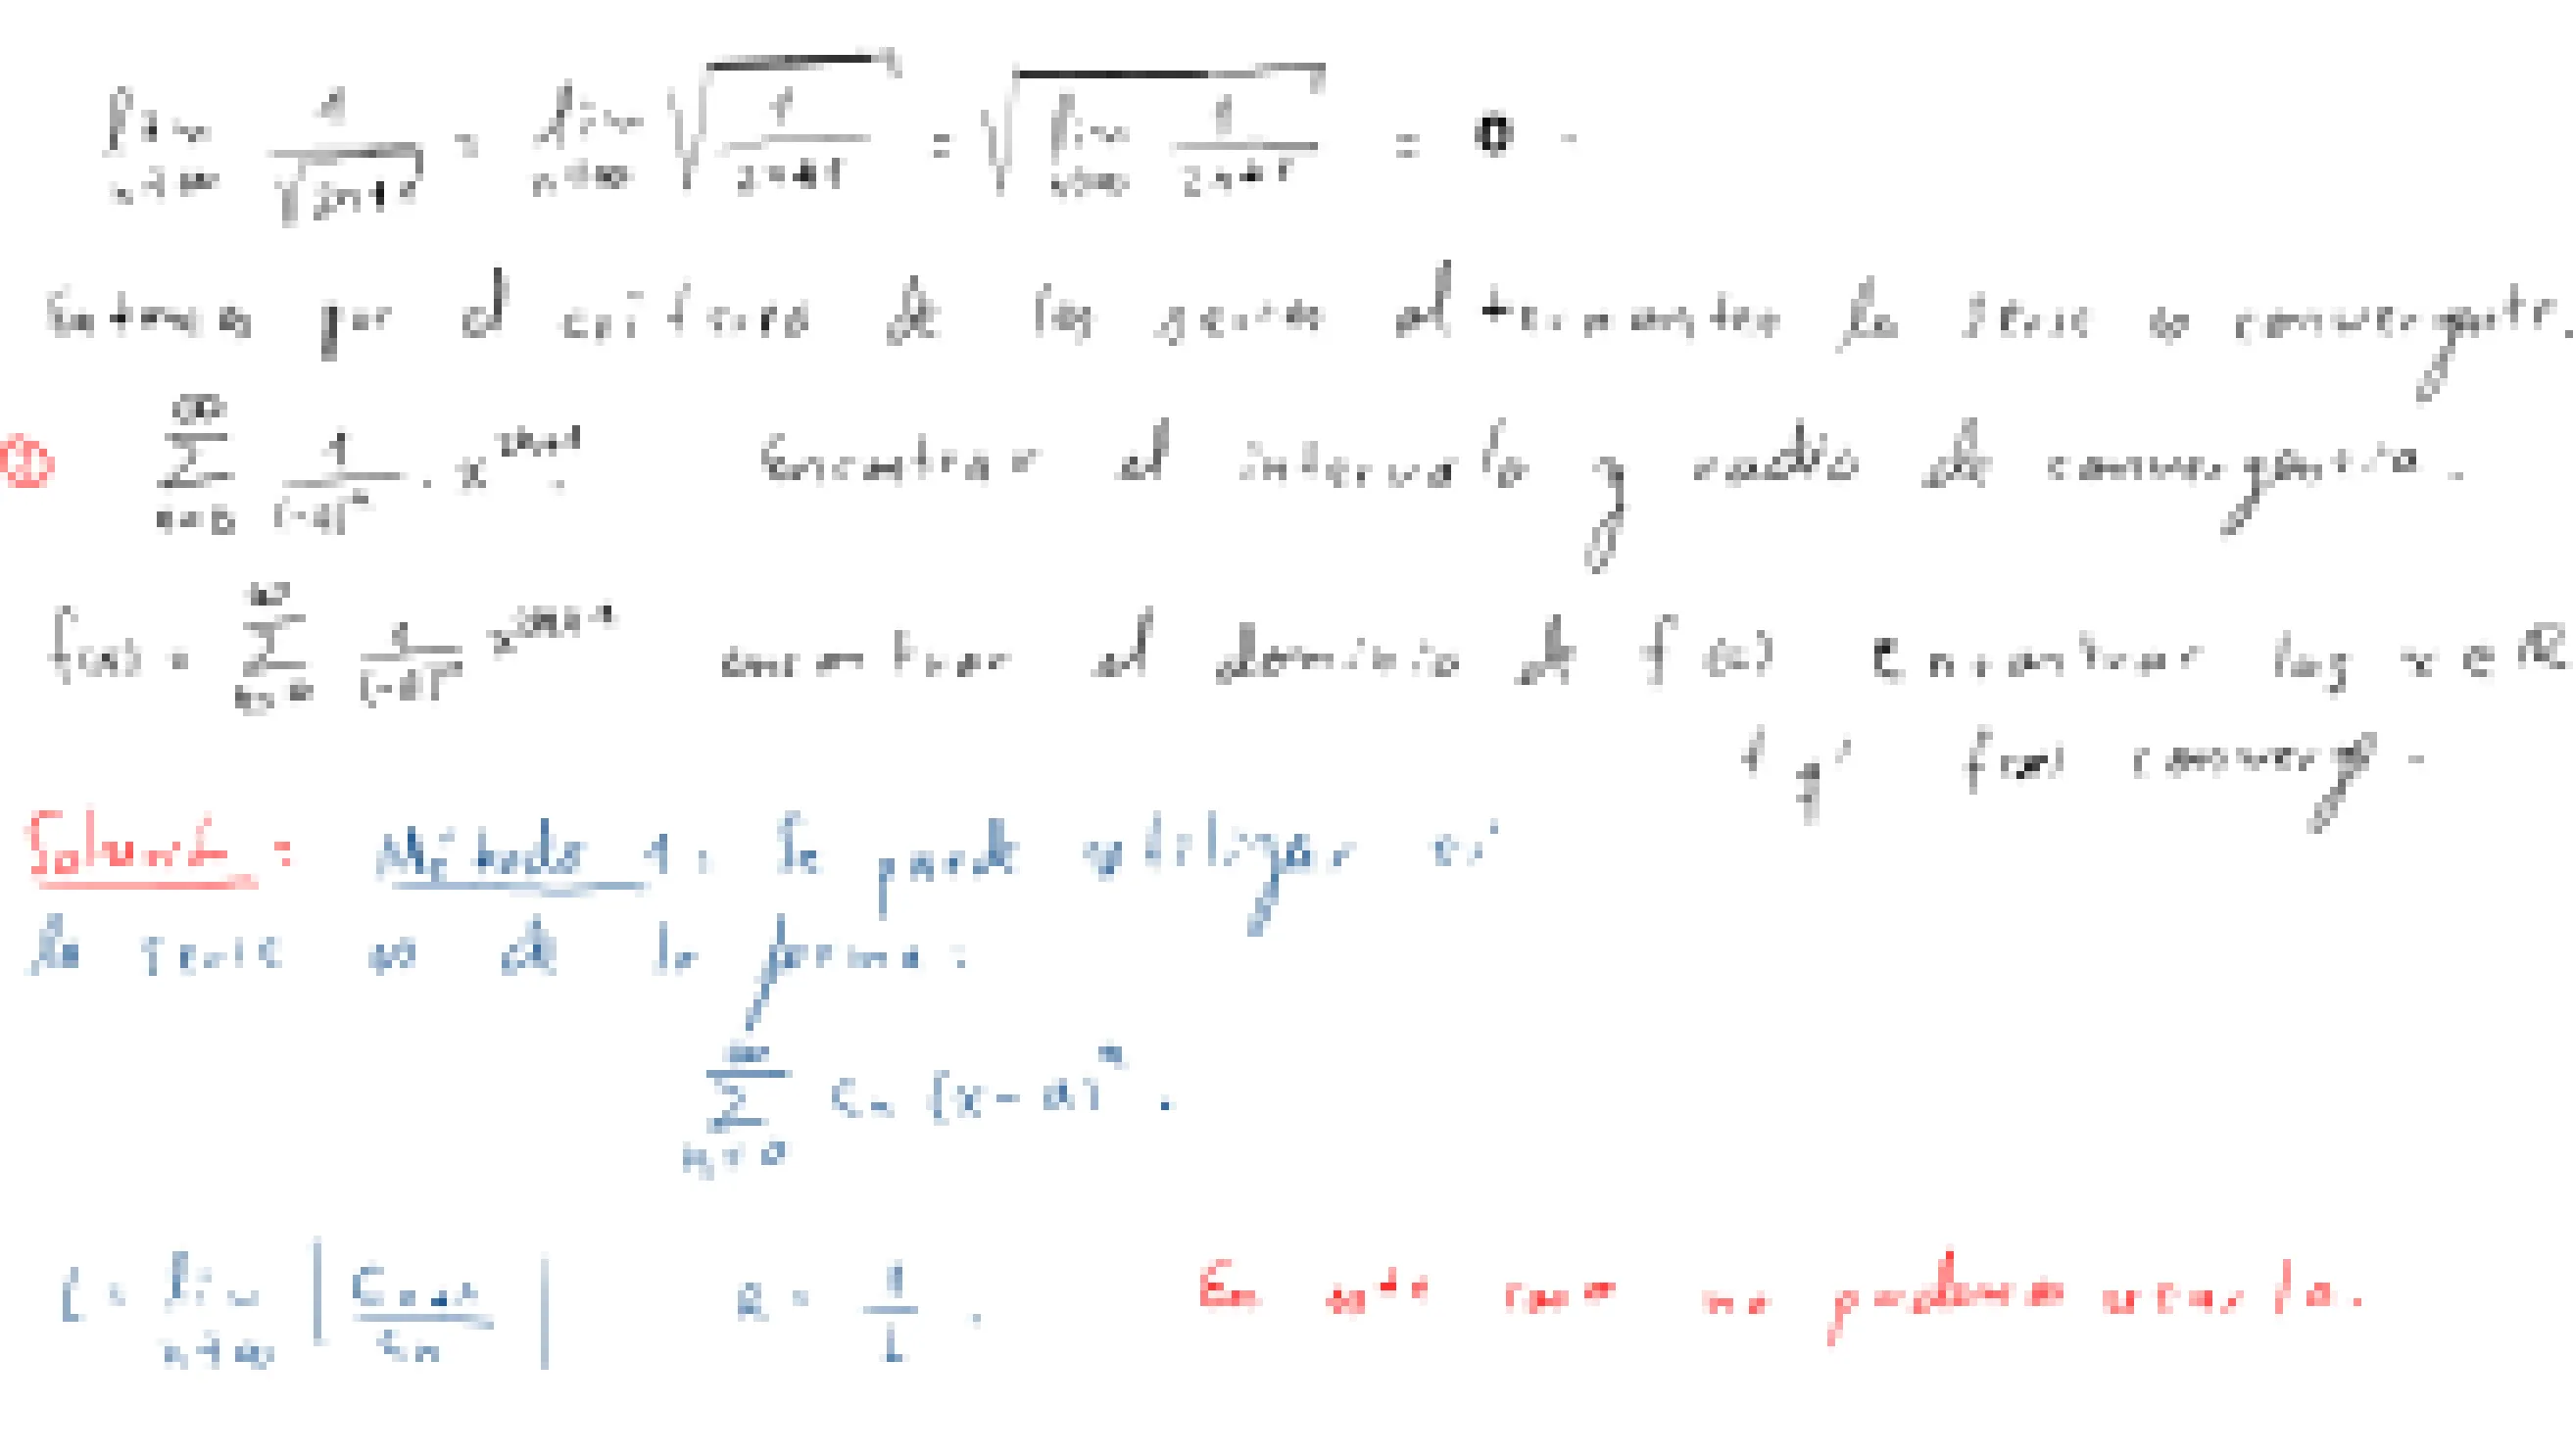 lim n→∞ 1/√(2n+1) = lim n→∞ √(1/(2n+1)) = √(lim n→∞ 1/(2n+1)) = 0.
Entonces por el criterio de las series alternantes la serie es convergente.
∑ n=0 ∞ 1/(-4)^n · x^(2n+1). Encontrar el intervalo y radio de convergencia.
f(x) = ∑ n=0 ∞ 1/(-4)^n x^(2n+1) encontrar el dominio de f(x) Encontrar los x ∈ ℝ
t q' f(x) converge.
Solución: Método 1: Se puede utilizar si
la serie es de la forma:
∑ n=0 ∞ Cn (x-a)^n.
L = lim n→∞ |Cn+1/Cn| R = 1/L. En este caso no podemos usarlo.